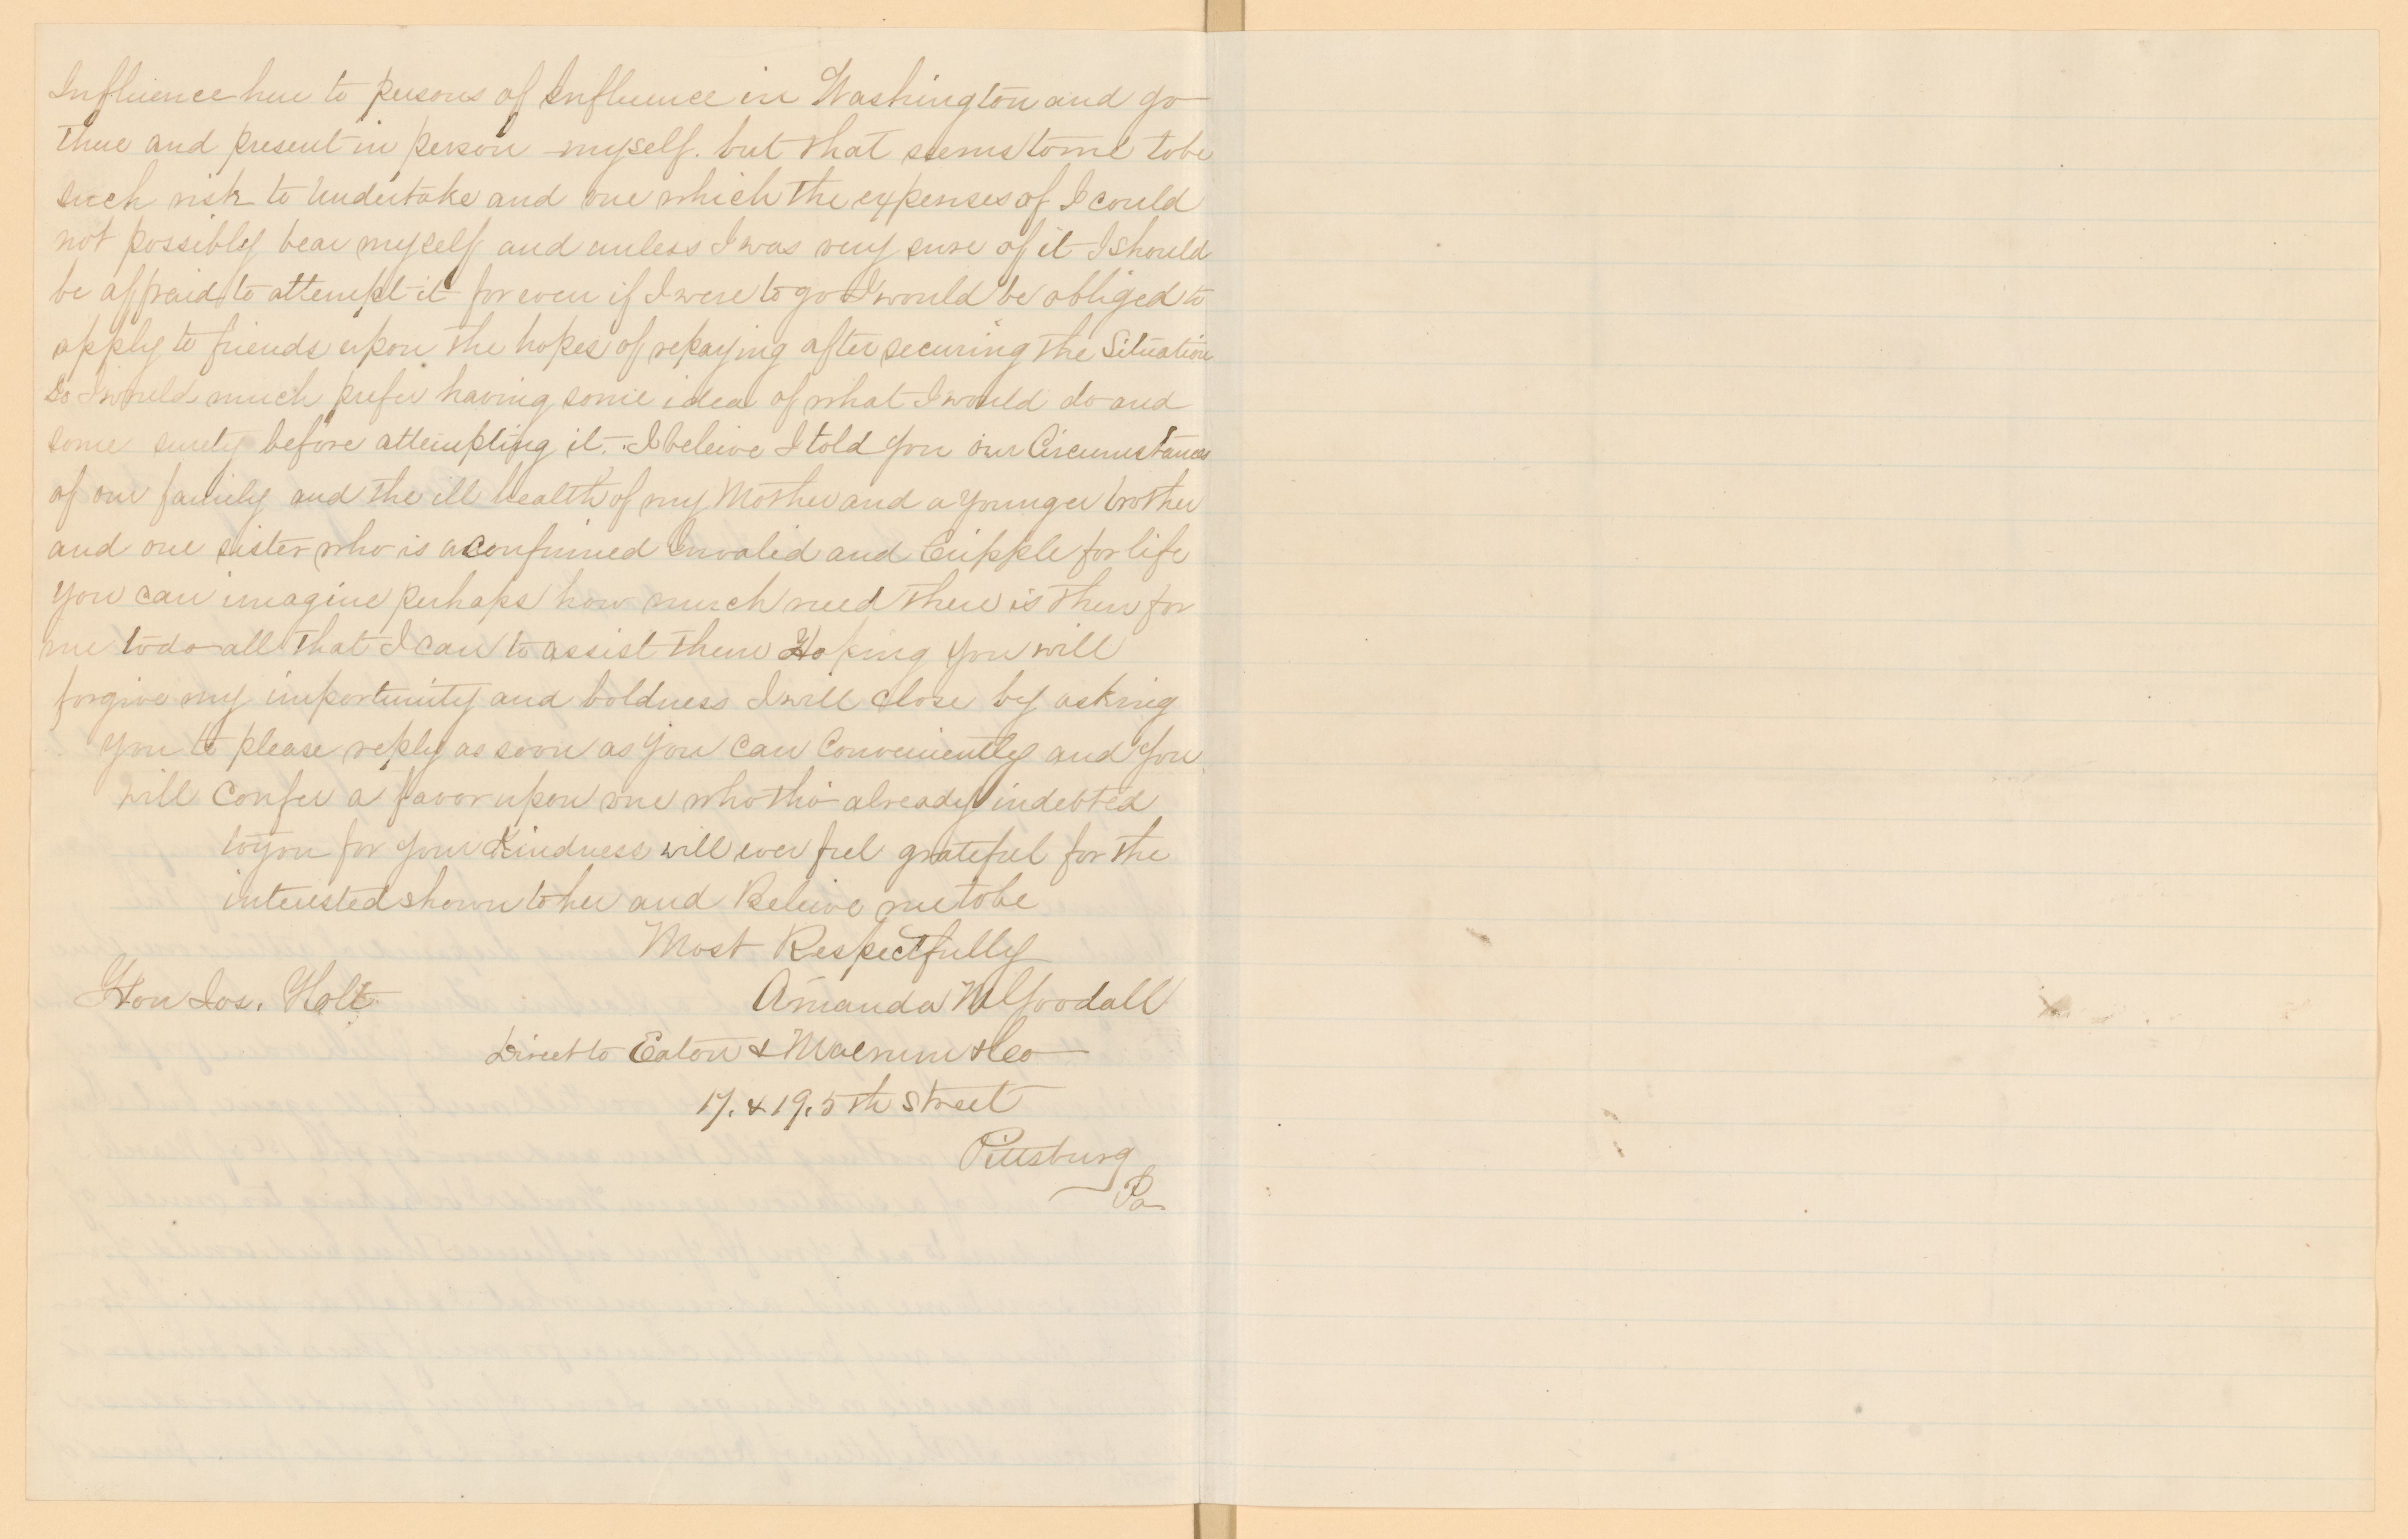 Influence here to persons of Influence in Washington and go
there and present in person myself. but that seems to me to be
such risk to Undertake and one which the expenses of I could
not possibly bear myself and unless I was very sure of it I should
be affraid to attempt it for even if I were to go I would be obliged to
apply to friends upon the hopes of repaying after securing the Situation
So I would much prefer having some idea of what I would do and
some surety before attempting it. I beleive I told you our Circumstances
of our family and the ill health of my Mother and a younger brother
and one sister who is a confirmed Invalid and Cripple for life
you can imagine perhaps how much need there is then for
me to do all that I can to assist them Hoping you will
forgive my importunity and boldness I will close by asking
you to please reply as soon as you can Conveniently and you
will confer a favor upon one who tho already indebted
to you for your Kindness will ever feel grateful for the
interested shown to her and Beleive me to be
Most Respectfully
Hon Jos. Holt
Amanda Woodall
Direct to Eaton & Macrum & Co
17. & 19. 5th Street
Pittsburg
Pa